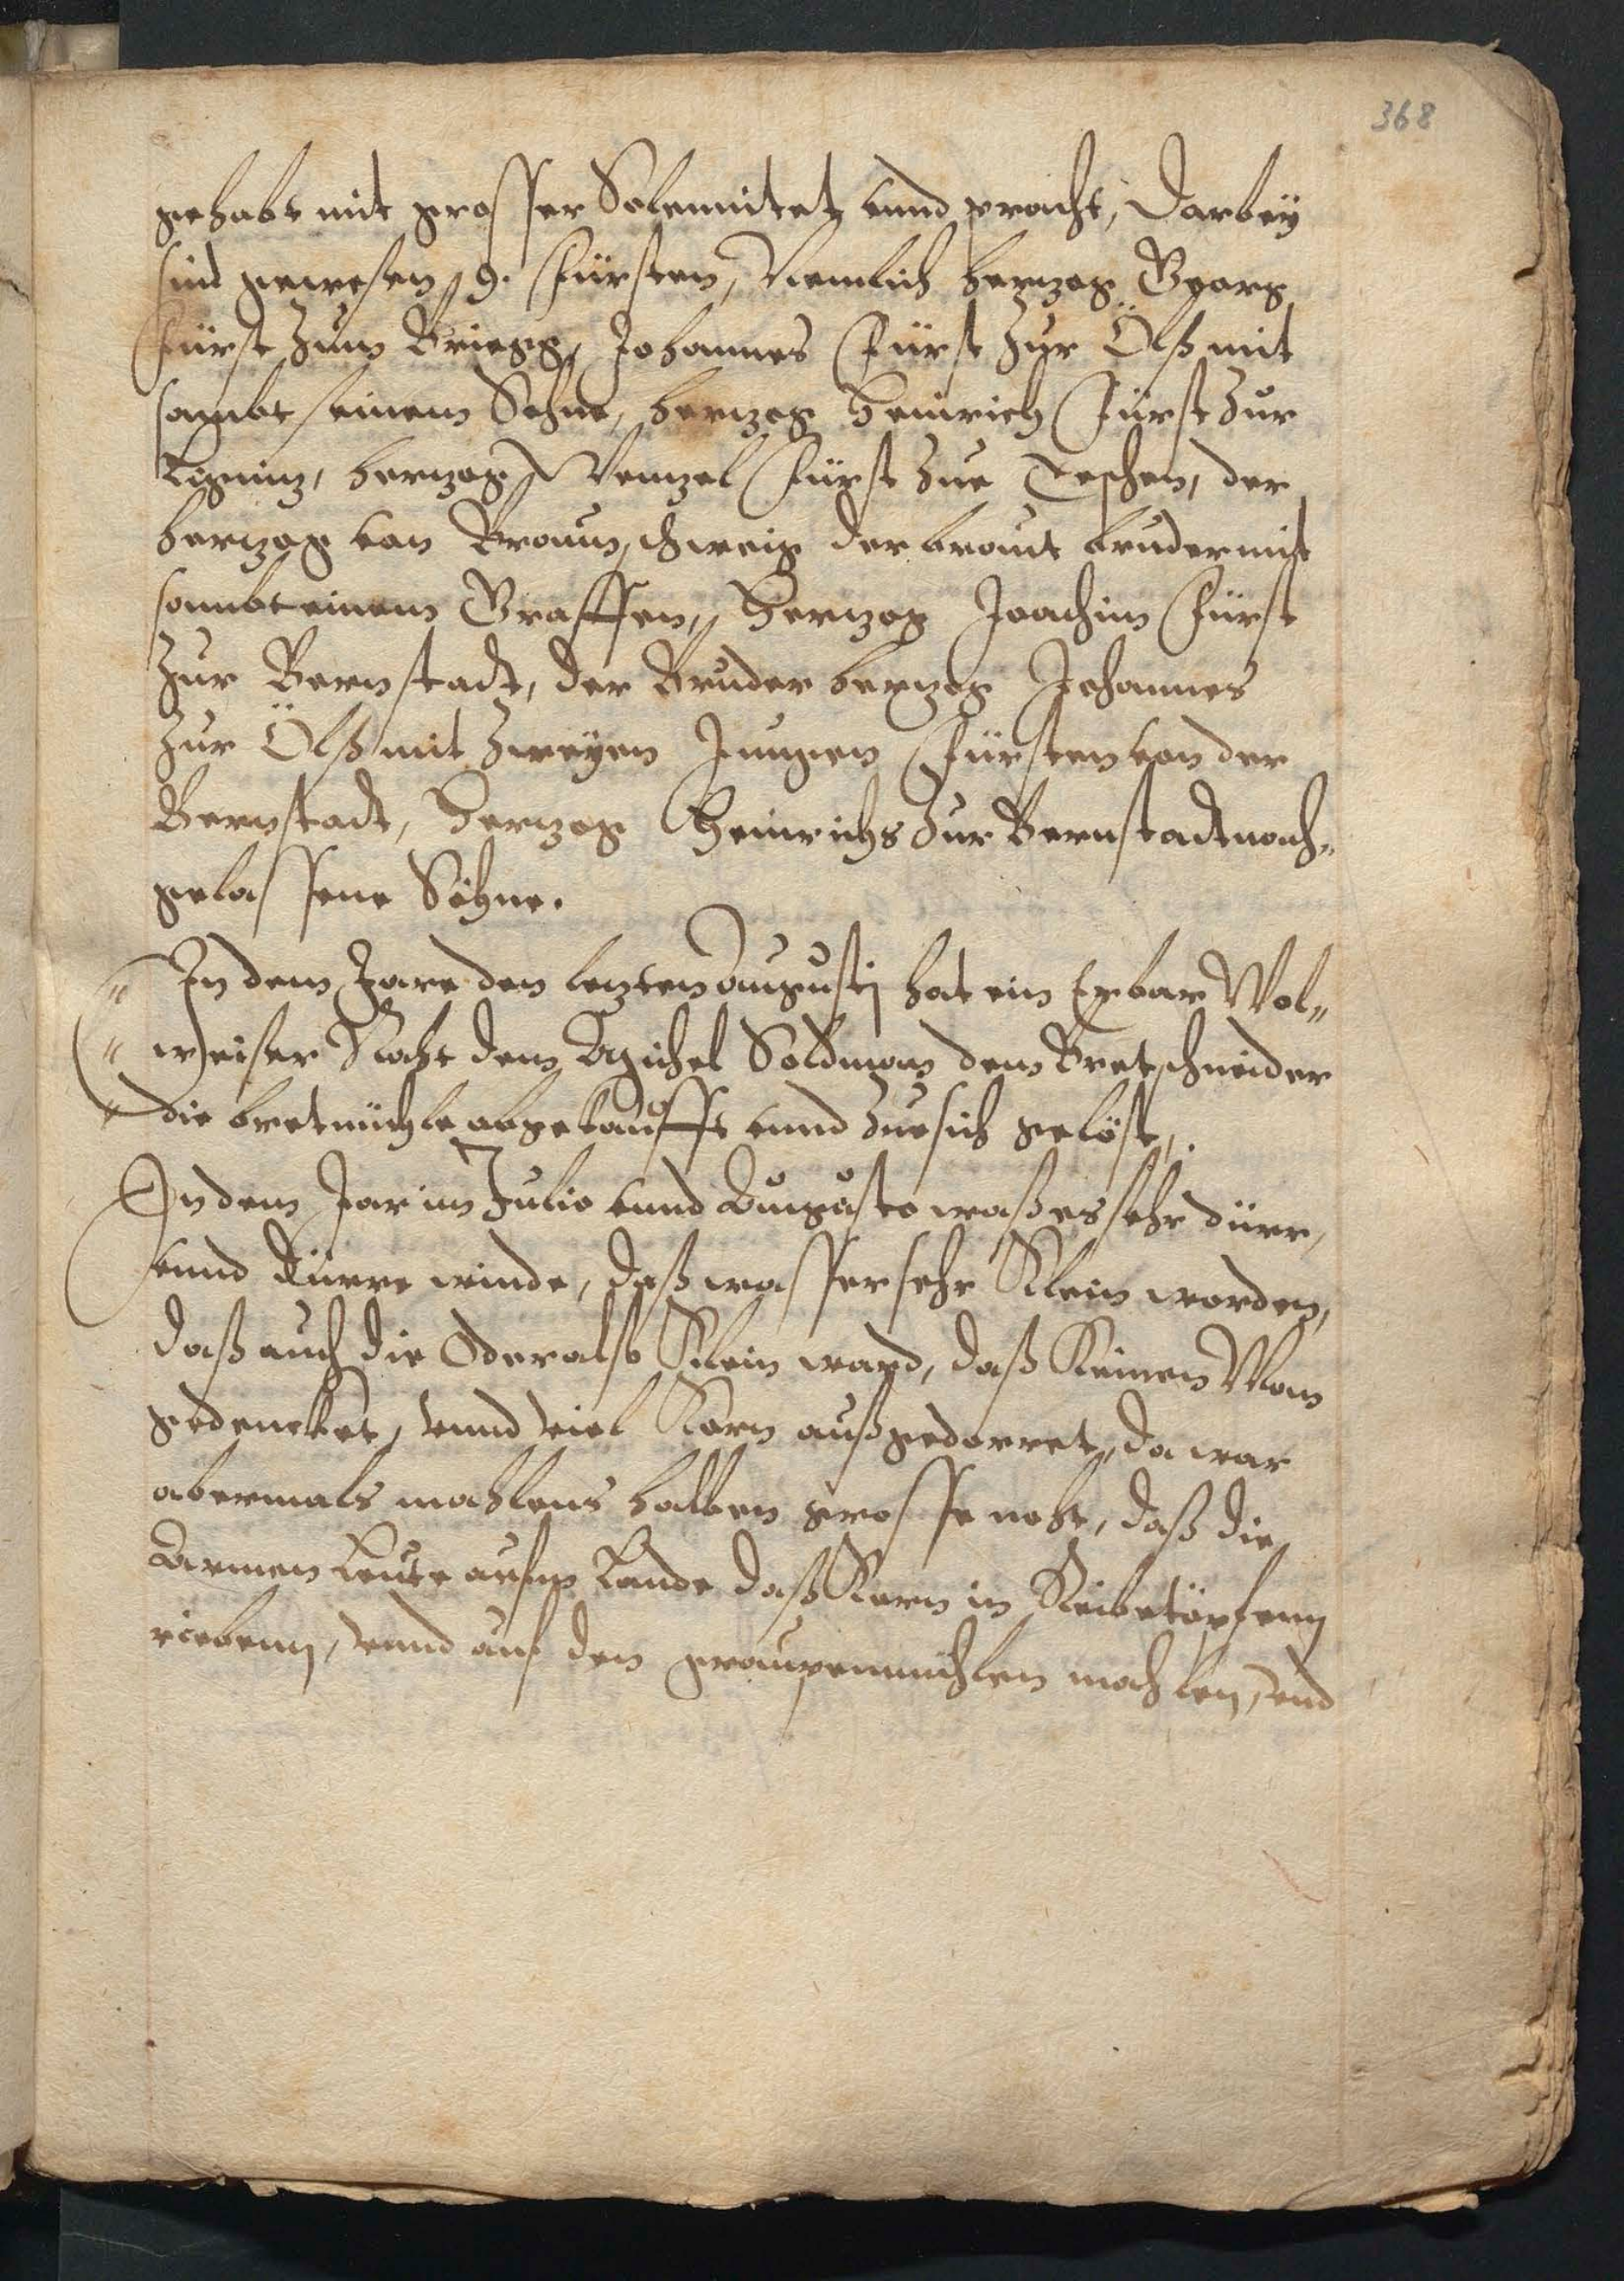 368
gehabt mit grosser Solennitet vnnd pracht, Darbeÿ
sind gewesen 9. Fürsten, Nemlich herzog Georg
Fürst zum Briegg, Johannes Fürst zur Ölß mit
sambt seinem Sohne, herzog Heinrich Fürst zur
Ligniz, herzog Wenzel Fürst zue Teschen, der
herzog von Braunschweig der braut bruder mit
sambt einem Graffen, Herzog Joachim Fürst
zur Bernstadt, der Bruder herzog Johannes
zur Ölß mit zweÿen Jungen Fürsten von der
Bernstadt, Herzog Heinrichs zur Bernstadt nach„
gelassene Söhne.
„ In dem Jare den lezten Augustj hat ein Erbar Wol„
„ weiser Raht dem Michel Soldman dem Bretschneider
„ die bretmühle abgekaufft vnnd zue sich gelöst,.
In dem Jar im Julio vnnd Augusto waß es sehr dürr,
vnnd Dürre winde, daß wasser sehr Klein worden,
daß auch die Oder also Klein ward, daß Keinen Man
gedencket, vnnd viel Korn außgedorret, da war
abermals mahlens halben grosse noht, daß die
Armen Leute aufm Lande daß Korn in Reibetöpfenn
riebenn, vnnd auf den graupenmühlen mahlen, vnd